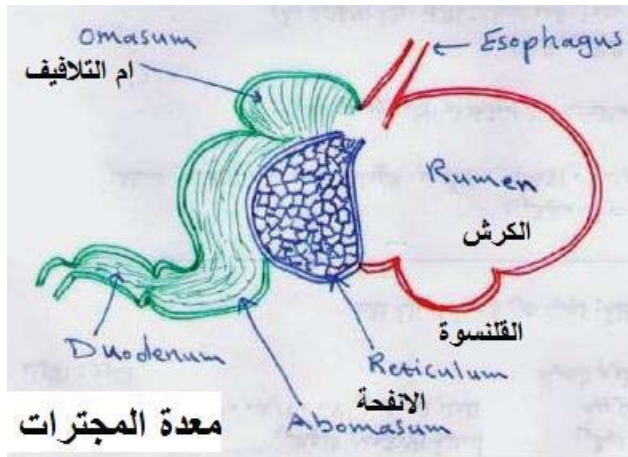 Omasum
ام التلافيف
Esophagus
Rumen
الكرش
القلنسوة
Duodenum
Reticulum
الانفحة
Abomasum
معدة المجترات